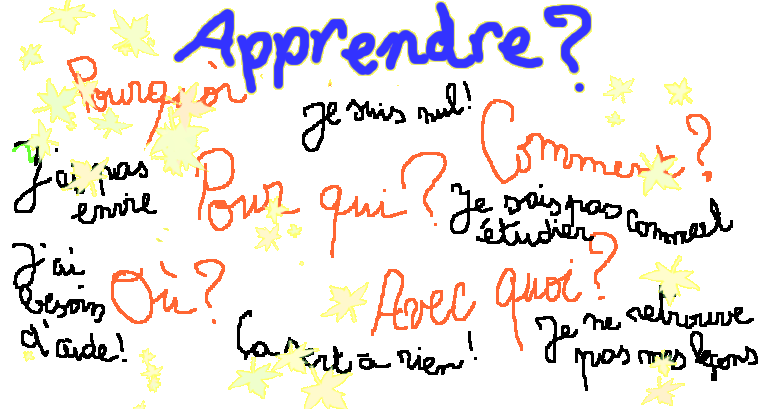 Apprendre?
Pourquoi
Je suis nul!
Comment?
J'ai pas
envie
Pour qui?
Je sais pas comment
étudier
J'ai
besoin
d'aide!
Où?
Avec quoi?
Ça sert à rien!
Je ne retrouve
pas mes leçons